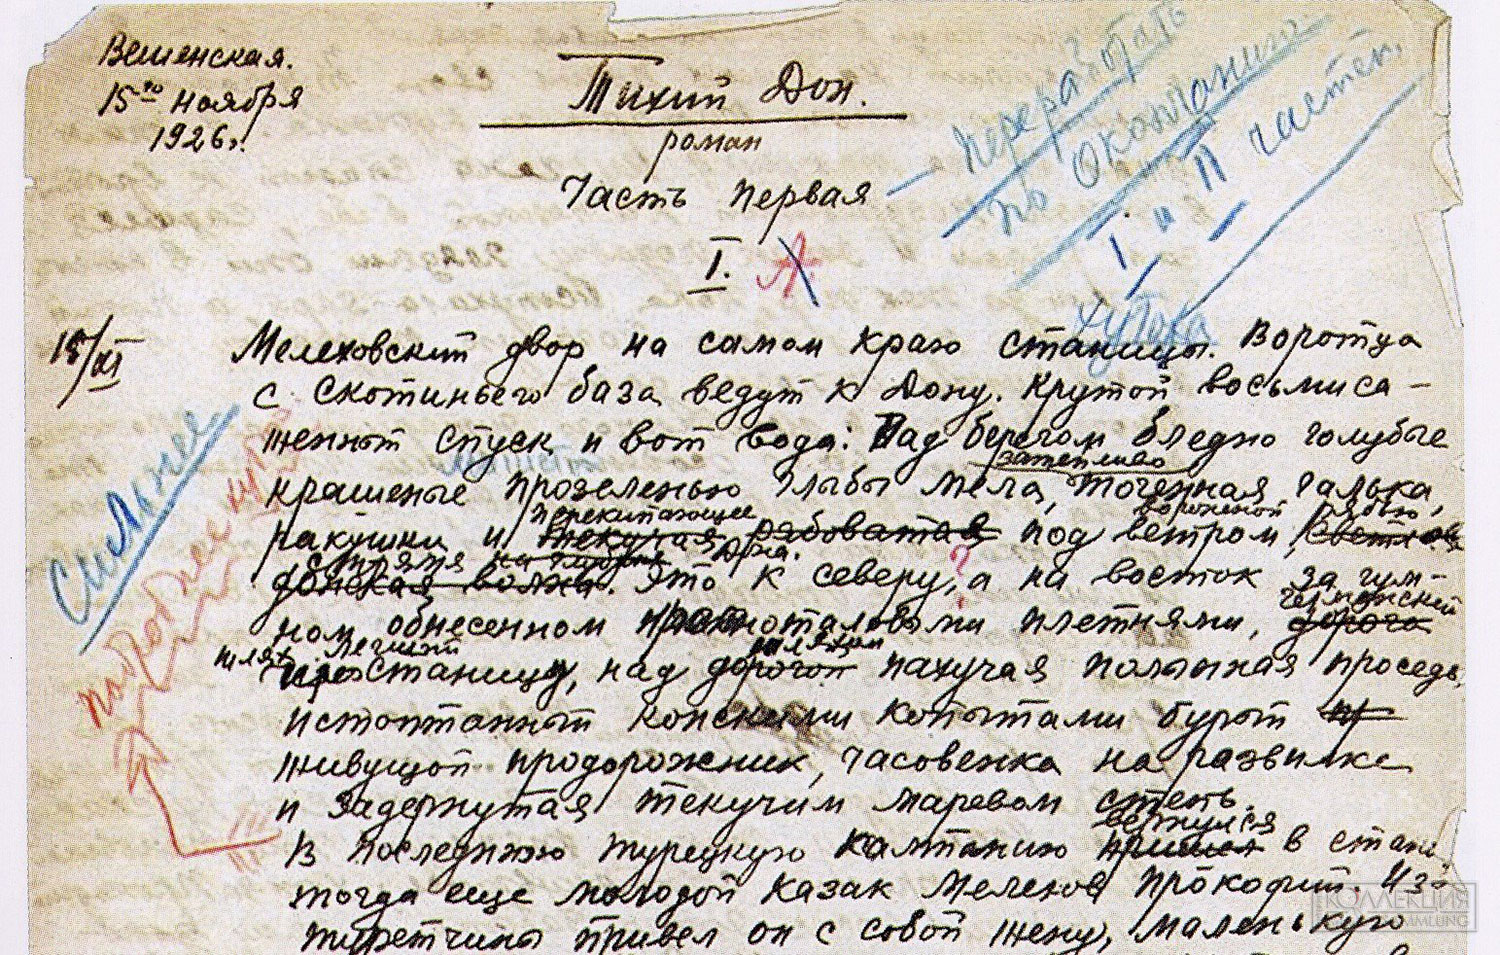 Вешенская.
15го ноября
1926г.
Тихий Дон.
роман
Часть первая
I. А
— переработать
по окончании
I и II частей.
15/XI
хутора
Мелеховский двор на самом краю станицы. Воротца
с скотиньего база ведут к Дону. Крутой восьмиса-
женный спуск и вот вода: Над берегом бледно голубые
затейливо
крашеные прозеленью глыбы мела, точенная галька,
перекипающее вороненой рябью,
ракушки и текучая рябоватая под ветром,
стремя Дона.
донская волна. Это к северу, а на восток за гум-
гетманский
ном обнесенном красноталовыми плетнями, дорога
шлях шляхом
станицу, над дорогой пахучая полынная проседь,
истоптанный конскими копытами бурый
живущой придорожник, часовенка на развилке
и задернутая текучим маревом степь.
вернулся
В последнюю турецкую кампанию пришел в стани
тогда еще молодой казак Мелехов Прокофий. Из
туретчины привел он с собой жену, маленькую
Сильнее
подробнее
КОЛЛЕКЦИЯ